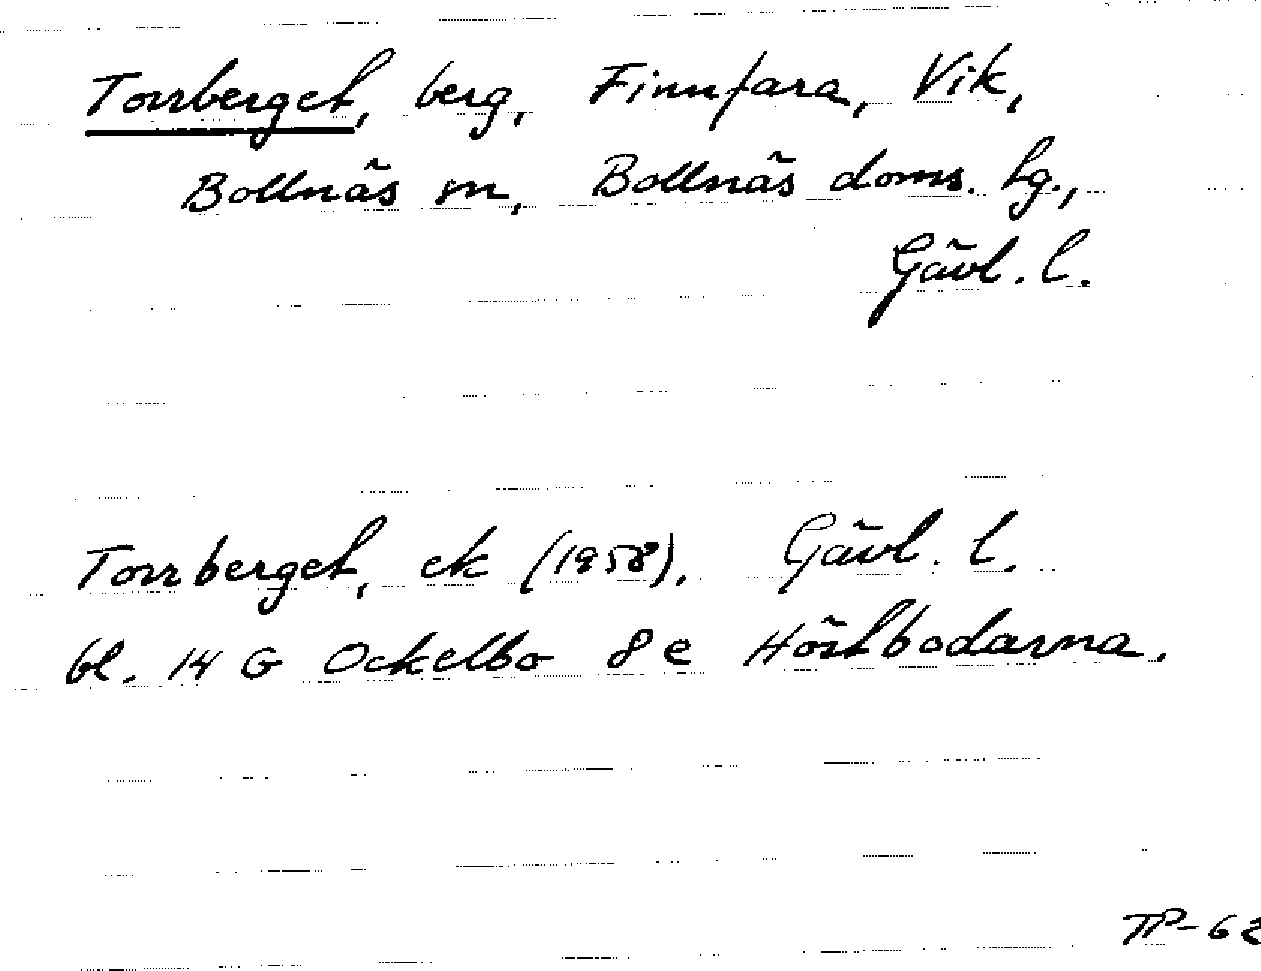 Torrberget, berg, Finnfara, Vik,
Bollnäs sn, Bollnäs doms. hg.,
Gävl. l.
Torrberget, ek (1958). Gävl. l.
bl. 14 G Ockelbo 8 e Höstbodarna.
TP-62